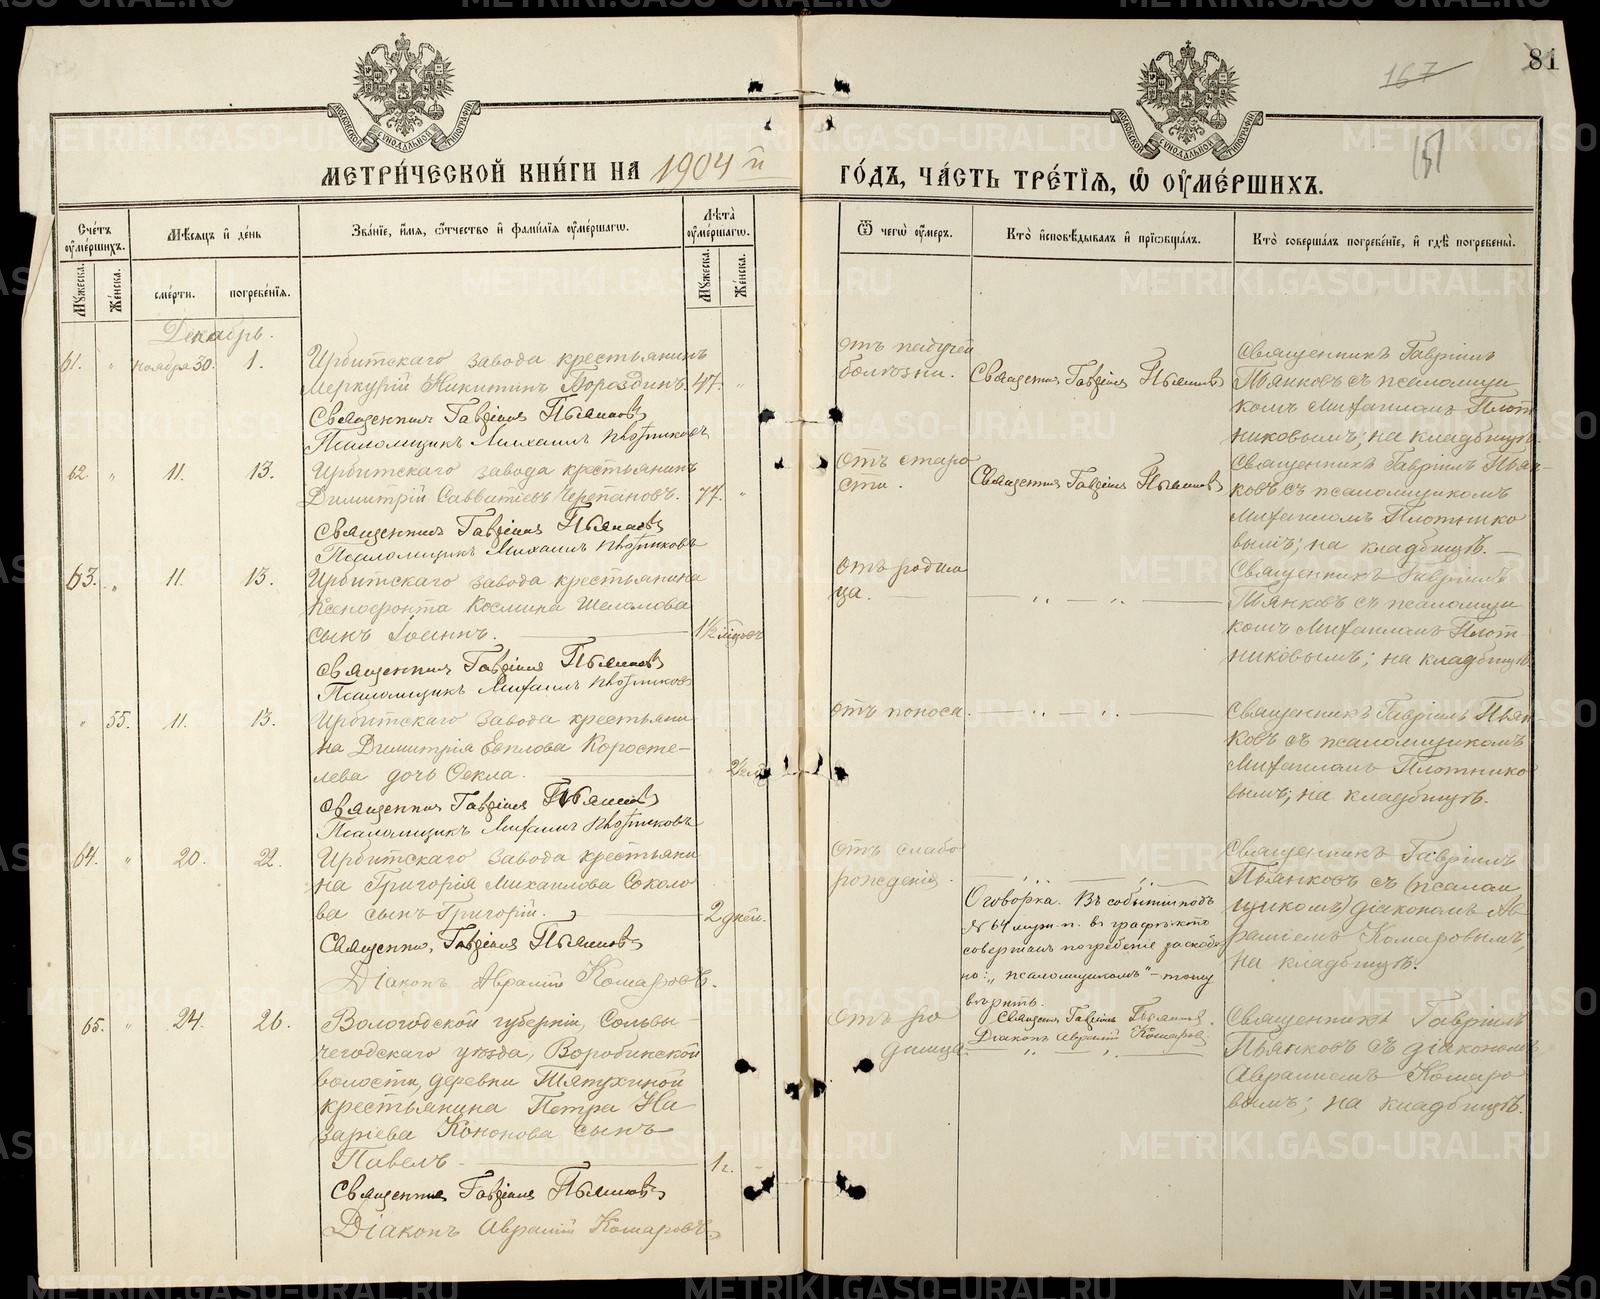 81
167
МОСКОВСКОЙ СѴНОДАЛЬНОЙ ТИПОГРАФІИ
МОСКОВСКОЙ СѴНОДАЛЬНОЙ ТИПОГРАФІИ
МЕТРИ́ЧЕСКОЙ КНИ́ГИ НА 1904 й
ГО́ДЪ, ЧА́СТЬ ТРЕ́ТІѦ, Ѡ҆ ОУ҆МЕ́РШИХЪ.
Сче́тъ оу҆ме́ршихъ.
Мѣ́сѧцъ и҆ де́нь
Зва́нїе, и҆́мѧ, ѻ҆́тчество и҆ фами́лїѧ оу҆ме́ршагѡ.
Лѣ́та оу҆ме́ршагѡ.
Ѿ чегѡ̀ оу҆́меръ.
Кто̀ и҆сповѣ́дывалъ и҆ прїѡбща́лъ.
Кто̀ соверша́лъ погребе́нїе, и҆ гдѣ̀ погребены̀.
Мꙋ́жеска.
Же́нска.
сме́рти.
погребе́нїѧ.
Мꙋ́жеска.
Же́нска.
Декабрь.
61. " Ноября 30. 1.
Ирбитскаго завода крестьянинъ
Меркурій Никитинъ Бороздинъ. 47. "
Священникъ Гавріилъ Пьянковъ
Псаломщикъ Михаилъ Плотниковъ
отъ падучей
болѣзни.
Священникъ Гавріилъ Пьянковъ
Священникъ Гавріилъ
Пьянковъ съ псаломщи
комъ Михаиломъ Плот
никовымъ; на кладбищѣ.
62. " 11. 13.
Ирбитскаго завода крестьянинъ
Димитрій Савватіевъ Черепановъ. 77. "
Священникъ Гавріилъ Пьянковъ
Псаломщикъ Михаилъ Плотниковъ
отъ старо
сти.
Священникъ Гавріилъ Пьянковъ
Священникъ Гавріилъ Пьян-
ковъ съ псаломщикомъ
Михаиломъ Плотнико
вымъ; на кладбищѣ.
63. " 11. 13.
Ирбитскаго завода крестьянина
Ксенофонта Космина Шеломова
сынъ Іоаннъ. 1½ мѣсяц
Священникъ Гавріилъ Пьянковъ
Псаломщикъ Михаилъ Плотниковъ
отъ родим
ца.
— " — " —
Священникъ Гавріилъ
Пьянковъ съ псаломщи
комъ Михаиломъ Плот
никовымъ; на кладбищѣ.
" 55. 11. 13.
Ирбитскаго завода крестьяни
на Димитрія Евплова Коросте-
лева дочь Ѳекла.
Священникъ Гавріилъ Пьянковъ
Псаломщикъ Михаилъ Плотниковъ
отъ поноса.
— " — " —
Священникъ Гавріилъ Пьян-
ковъ съ псаломщикомъ
Михаиломъ Плотнико
вымъ; на кладбищѣ.
64. " 20. 22.
Ирбитскаго завода крестьяни
на Григорія Михаилова Соколо
ва сынъ Григорій. 2 дней.
Священникъ Гавріилъ Пьянковъ
Діаконъ Аврамій Комаровъ.
отъ слабо
рожденія.
— " — " —
Оговорка. Въ событіи подъ
№ 64 муж. п. въ графѣ кто
совершалъ погребеніе заскобле
но: „псаломщикомъ" – тому
вѣрить.
Священникъ Гавріилъ Пьянковъ.
Діаконъ Аврамій Комаровъ.
Священникъ Гавріилъ
Пьянковъ съ (псалом
щикомъ) діакономъ Ав
раміемъ Комаровымъ,
на кладбищѣ.
65. " 24. 26.
Вологодской губерніи, Сольвы
чегодскаго уѣзда, Воробинской
волости, деревни Тяпухиной
крестьянина Петра На
заріева Кононова сынъ
Павелъ 1 г.
Священникъ Гавріилъ Пьянковъ
Діаконъ Аврамій Комаровъ.
отъ ро
димца.
— " — " —
Священникъ Гавріилъ
Пьянковъ съ діакономъ
Авраміемъ Комаро
вымъ; на кладбищѣ.
METRIKI.GASO-URAL.RU